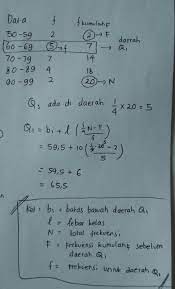 Data f f kumulatif
50-59 2 2 → F
60-69 5 → f 7 daerah Q₁
70-79 7 14
80-89 4 18
90-99 2 20 → N
Q₁ ada di daerah 1/4 × 20 = 5
Q₁ = b₁ + l ( (1/4 N - F) / f )
= 59,5 + 10 ( (1/4 · 20 - 2) / 5 )
= 59,5 + 6
= 65,5
Ket = b₁ = batas bawah daerah Q₁
l = lebar kelas
N = total frekuensi
F = frekuensi kumulatif sebelum daerah Q₁
f = frekuensi untuk daerah Q₁